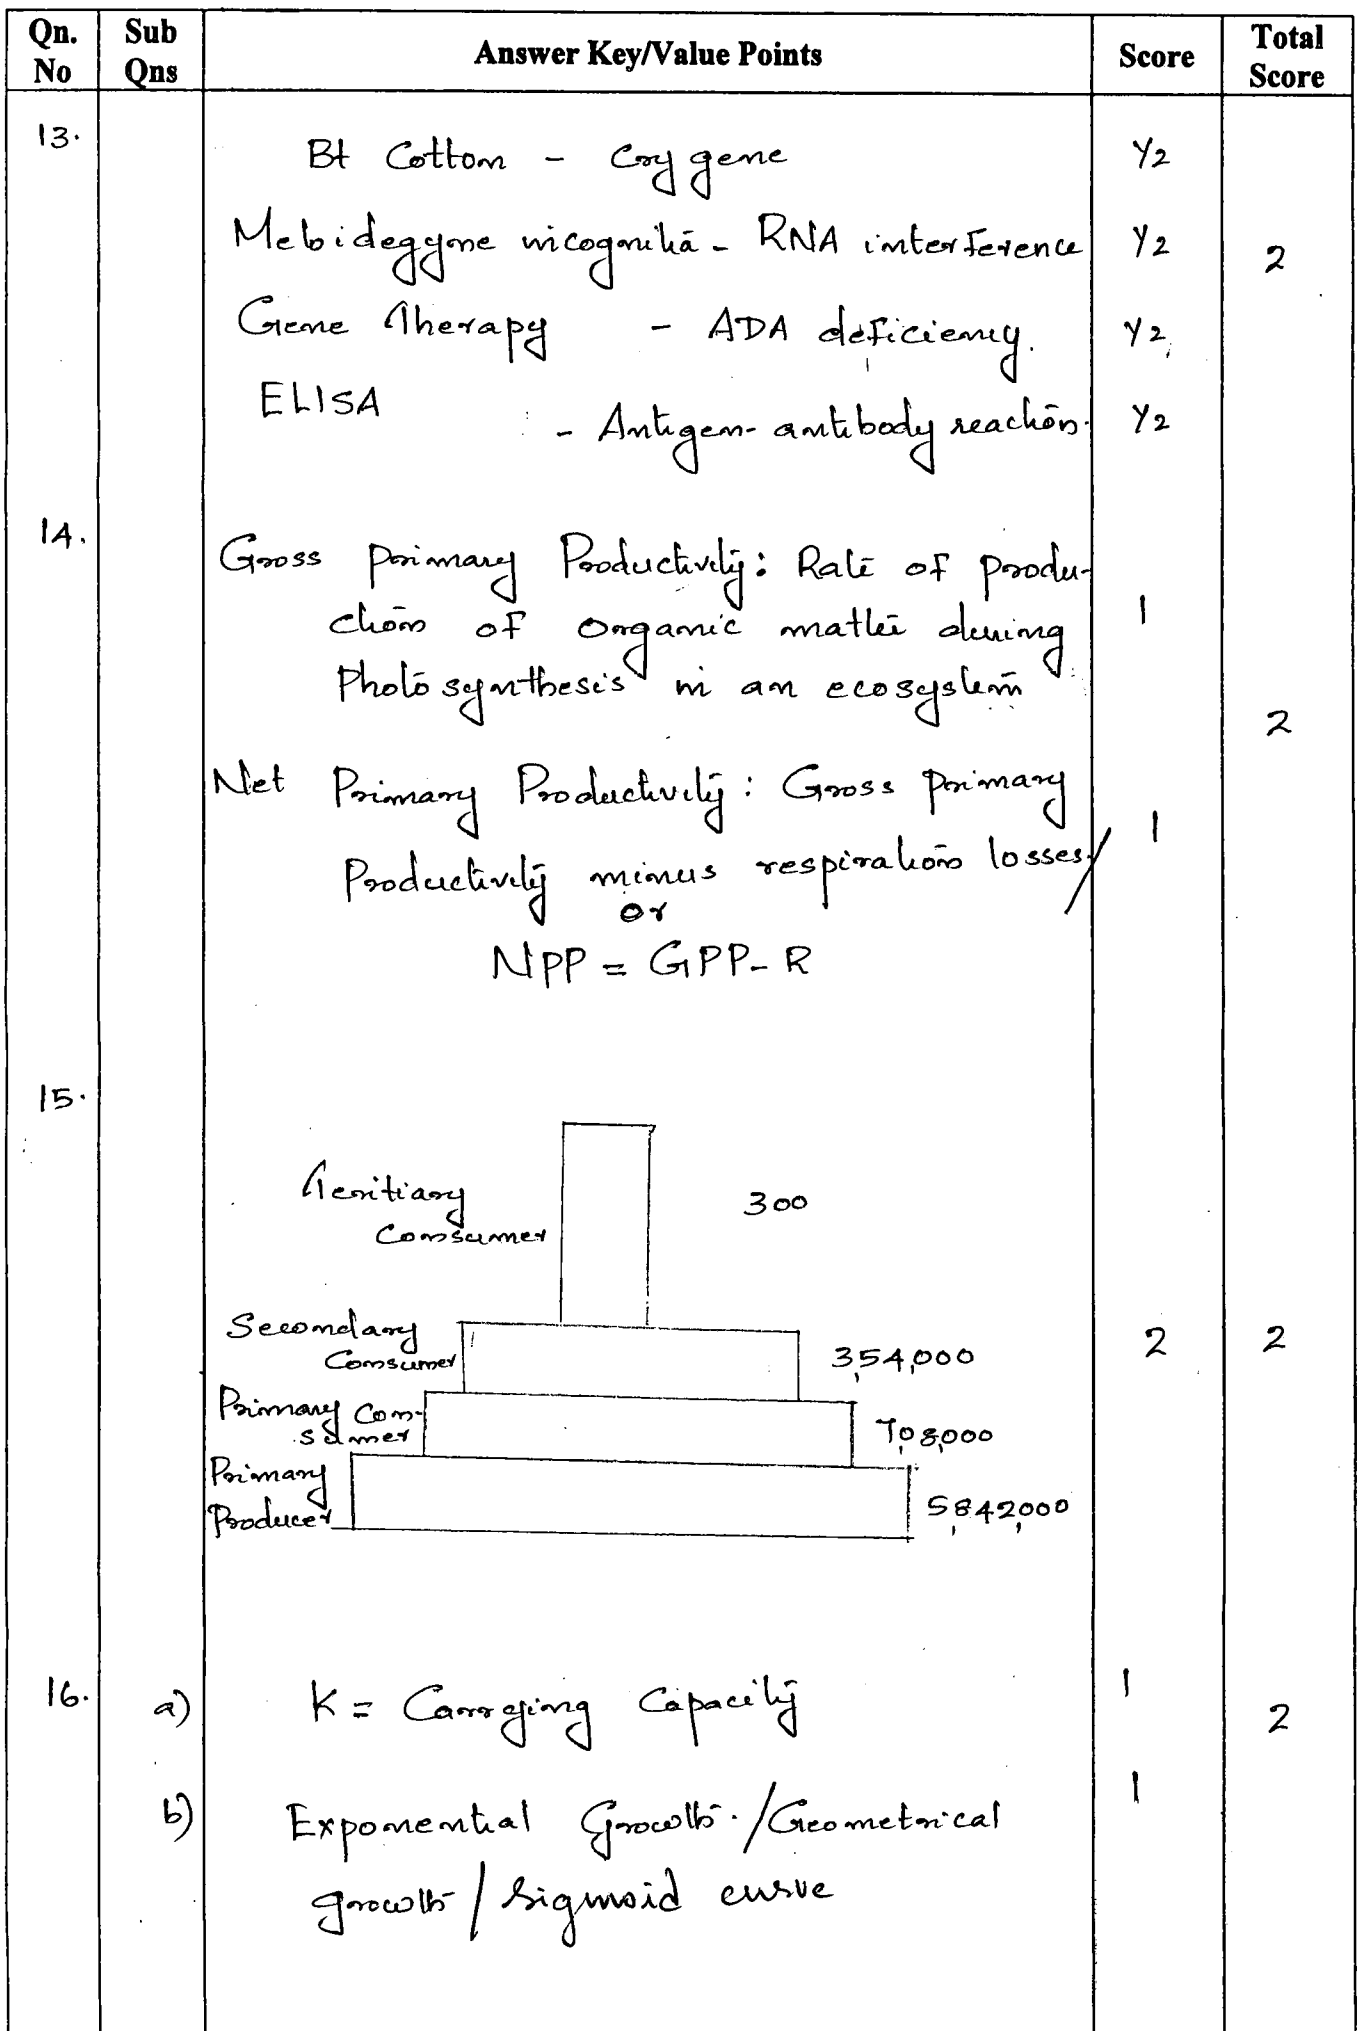 Qn. No Sub Qns Answer Key/Value Points Score Total Score
13. Bt Cotton - Cry gene ½
Meloidegyne incognitia - RNA interference ½ 2
Gene Therapy - ADA deficiency. ½
ELISA - Antigen-antibody reaction. ½
14. Gross primary Productivity: Rate of produ-
ction of organic matter during 1
Photosynthesis in an ecosystem
2
Net Primary Productivity: Gross primary
Productivity minus respiration losses/ 1
or
NPP = GPP-R
15.
Teritiary 300
Consumer
Secondary
Consumer 354,000 2 2
Primary Con-
sumer 708,000
Primary
Producer 5,842,000
16. a) K = Carrying Capacity 1 2
b) Exponential Growth./Geometrical 1
growth / Sigmoid curve